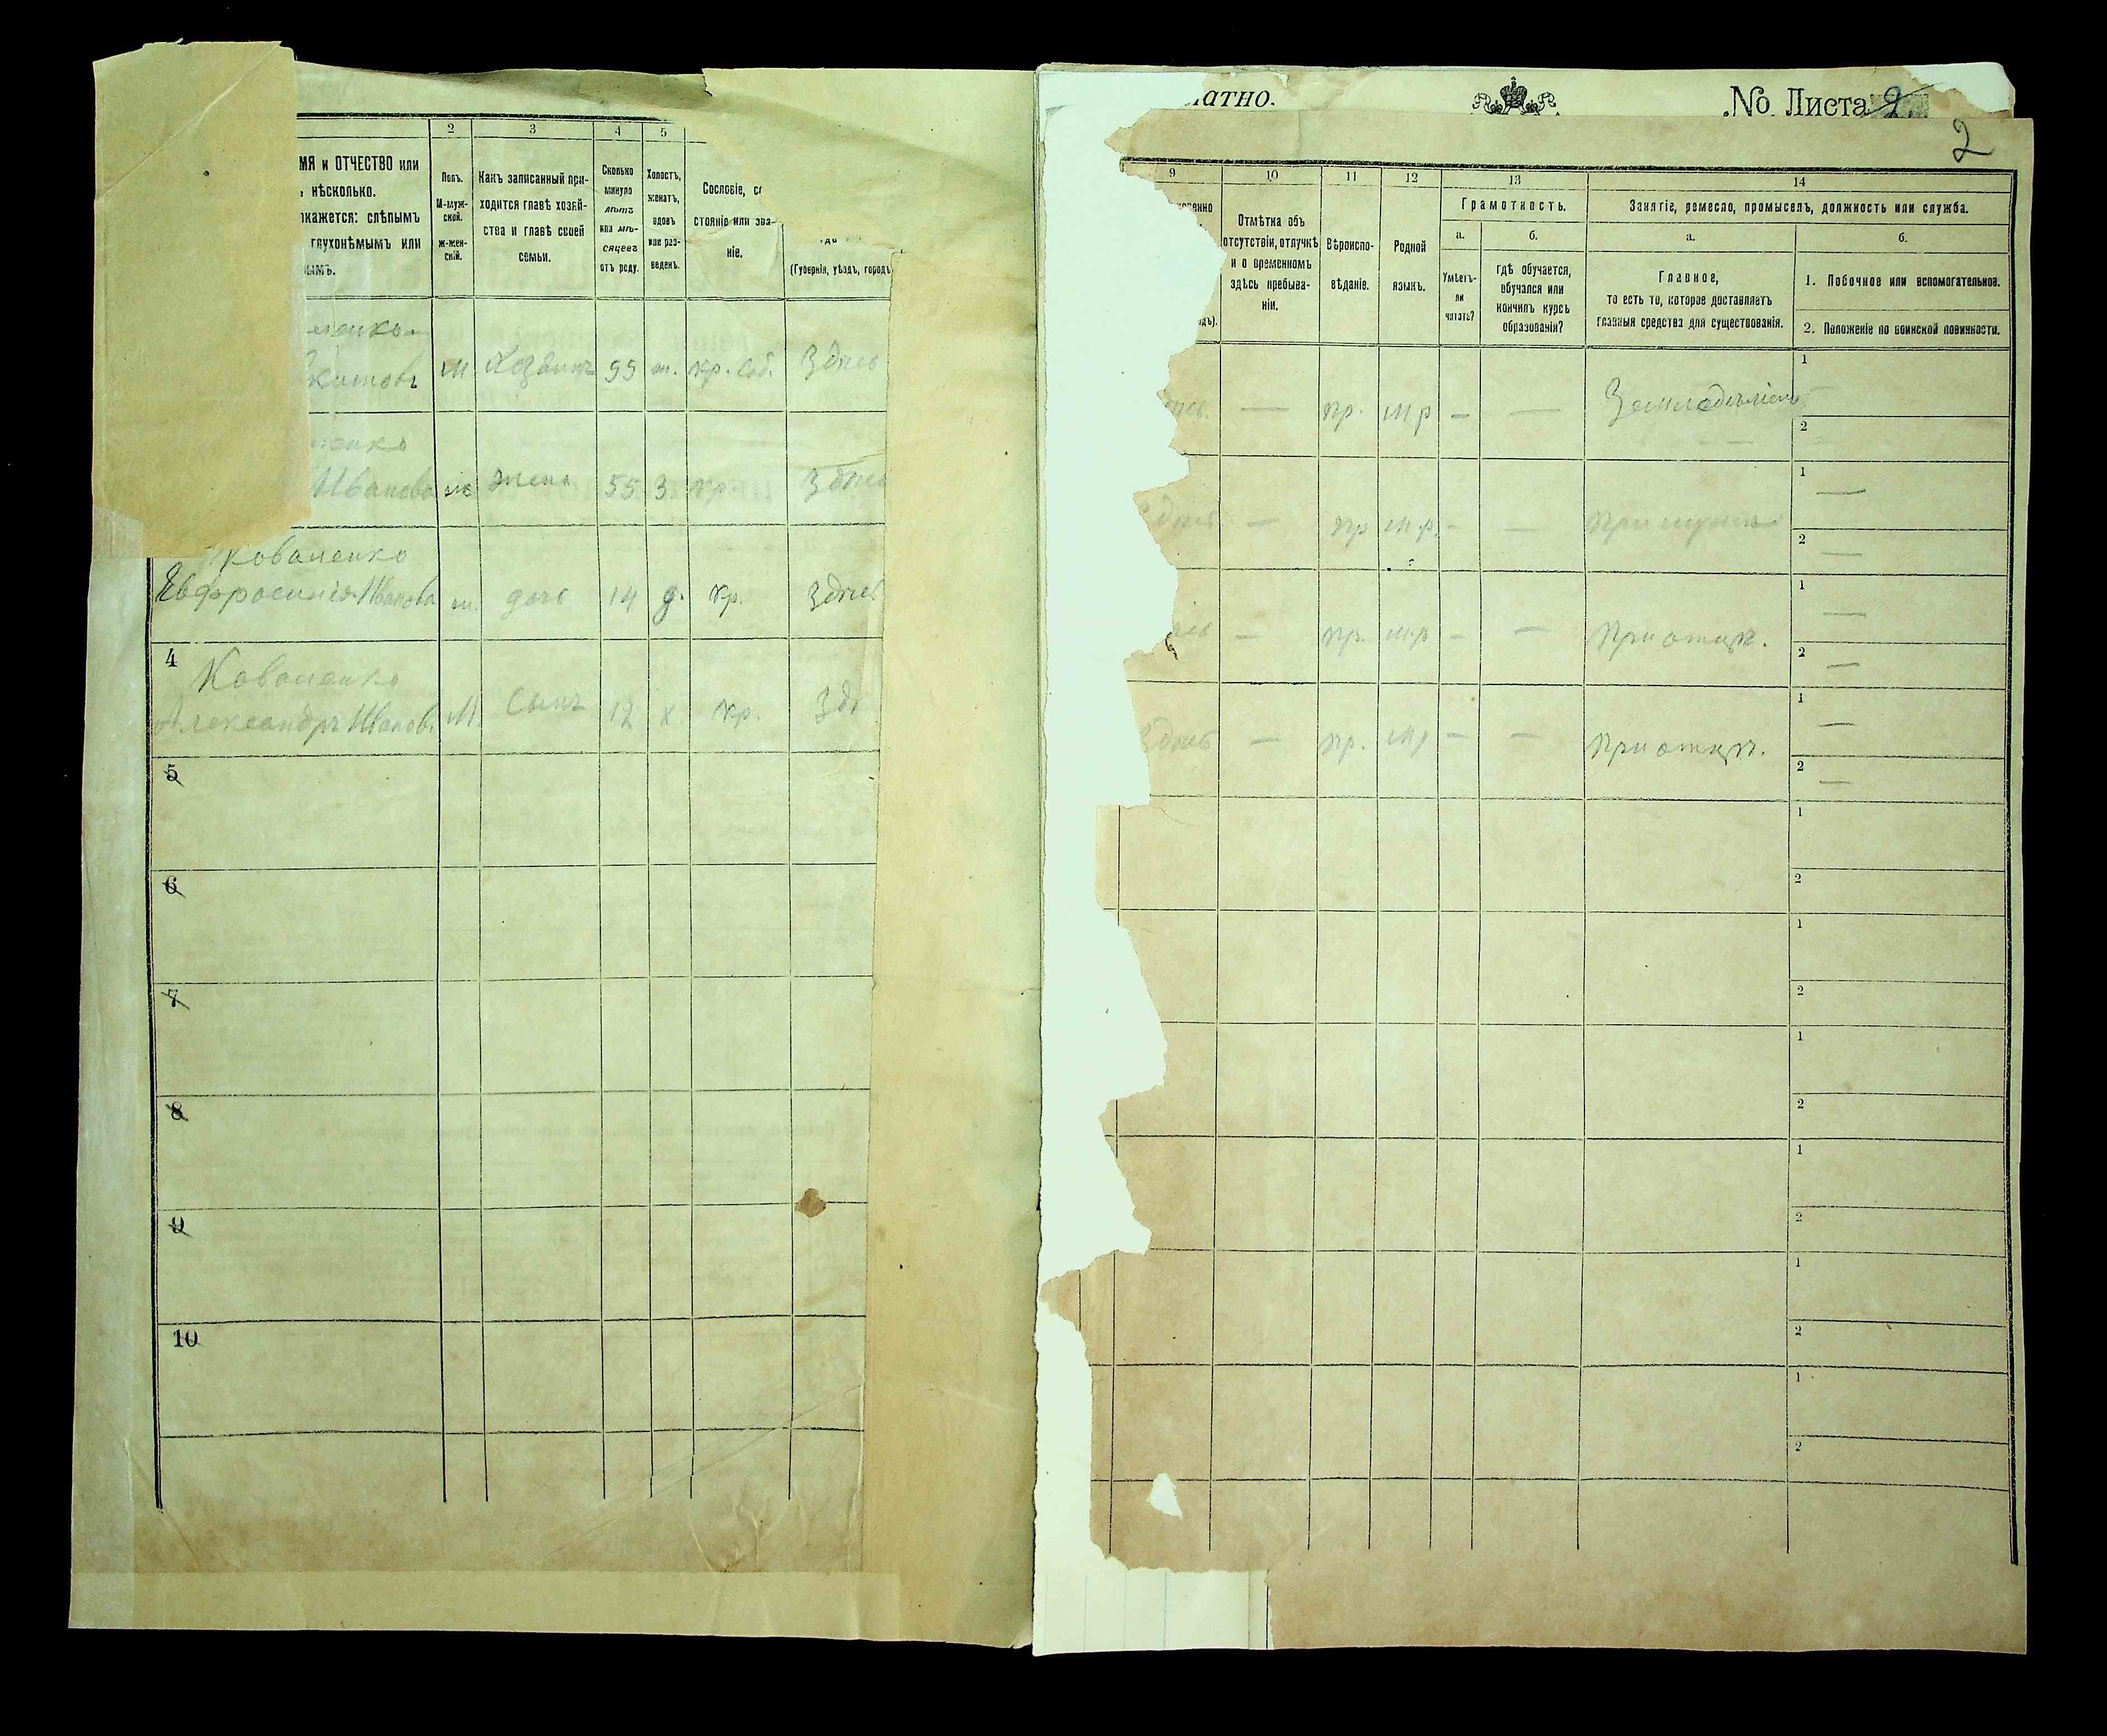 2 3 4 5
МЯ и ОТЧЕСТВО или
нѣсколько.
окажется: слѣпымъ
глухонѣмымъ или
Полъ.
М-муж-
ской.
ж-жен-
скій.
Какъ записанный при-
ходится главѣ хозяй-
ства и главѣ своей
семьи.
Сколько
минуло
лѣтъ
или мѣ-
сяцевъ
отъ роду.
Холостъ,
женатъ,
вдовъ
или раз-
веденъ.
Сословіе, со
стояніе или зва-
ніе.
(Губернія, уѣздъ, городъ
М Хозяинъ 55 кр. соб. Здѣсь
Иванова жена 55 З. кр. Здѣсь
Коваленко
Евфросинія Иванова дочь 14 д. кр. Здѣсь
4
Коваленко
Александръ Иванов. М. Сынъ 12 х. кр. Зд
5
6
7
8
9
10
латно.
№ Листа 2
2
9 10 11 12 13 14
Отмѣтка объ
отсутствіи, отлучкѣ
и о временномъ
здѣсь пребыва-
ніи.
Вѣроиспо-
вѣданіе.
Родной
языкъ.
Грамотность.
а. б.
Умѣетъ-
ли
читать?
гдѣ обучается,
обучался или
кончилъ курсъ
образованія?
Занятіе, ремесло, промыселъ, должность или служба.
а. б.
Главное,
то есть то, которое доставляетъ
главныя средства для существованія.
1. Побочное или вспомогательное.
2. Положеніе по воинской повинности.
— пр. м р — — Земледѣліемъ
1
2
Здѣсь — пр м.р. — — При мужѣ
1 —
2 —
— пр. м.р — — При отцѣ.
1 —
2 —
Здѣсь — пр. м р — — При отцѣ.
1 —
2 —
1
2
1
2
1
2
1
2
1
2
1
2